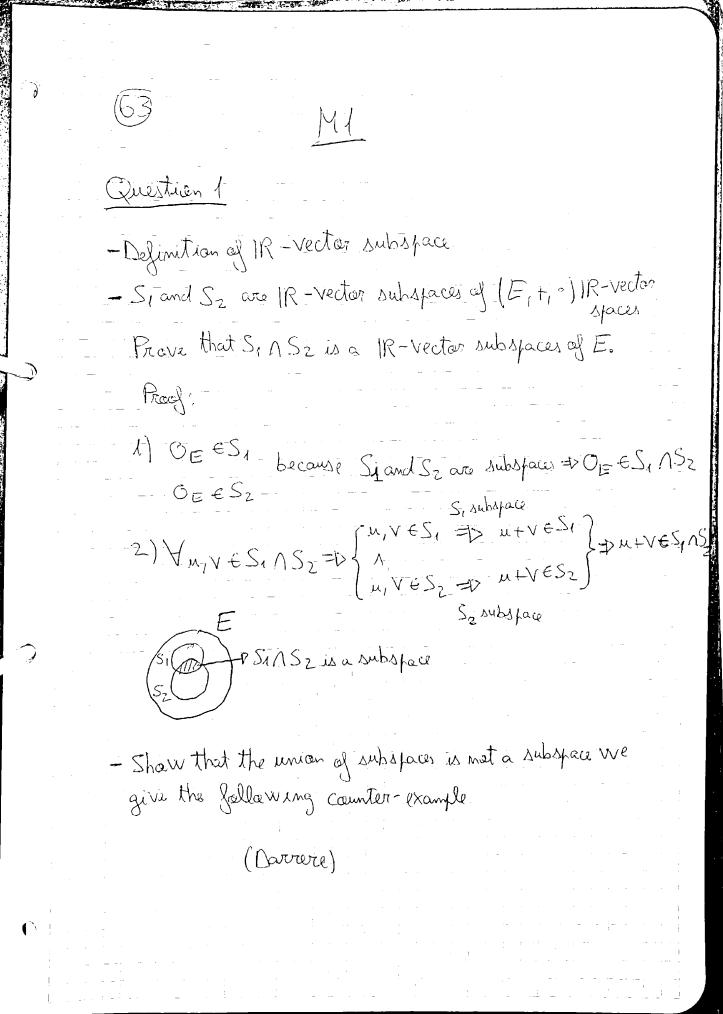 63
M1
Question 1
- Definition of IR-vector subspace
- S₁ and S₂ are IR-vector subspaces of (E, +, ·) IR-vector
spaces
Prove that S₁ ∩ S₂ is a IR-vector subspaces of E.
Proof:
1) O_E ∈ S₁
because S₁ and S₂ are subspaces ⇒ O_E ∈ S₁ ∩ S₂
O_E ∈ S₂
S₁ subspace
2) ∀ u, v ∈ S₁ ∩ S₂ ⇒ { u, v ∈ S₁ ⇒ u + v ∈ S₁
∧ } ⇒ u + v ∈ S₁ ∩ S₂
u, v ∈ S₂ ⇒ u + v ∈ S₂
S₂ subspace
E
S₁
S₁ ∩ S₂ is a subspace
S₂
- Show that the union of subspaces is not a subspace we
give the following counter-example
(Darrere)